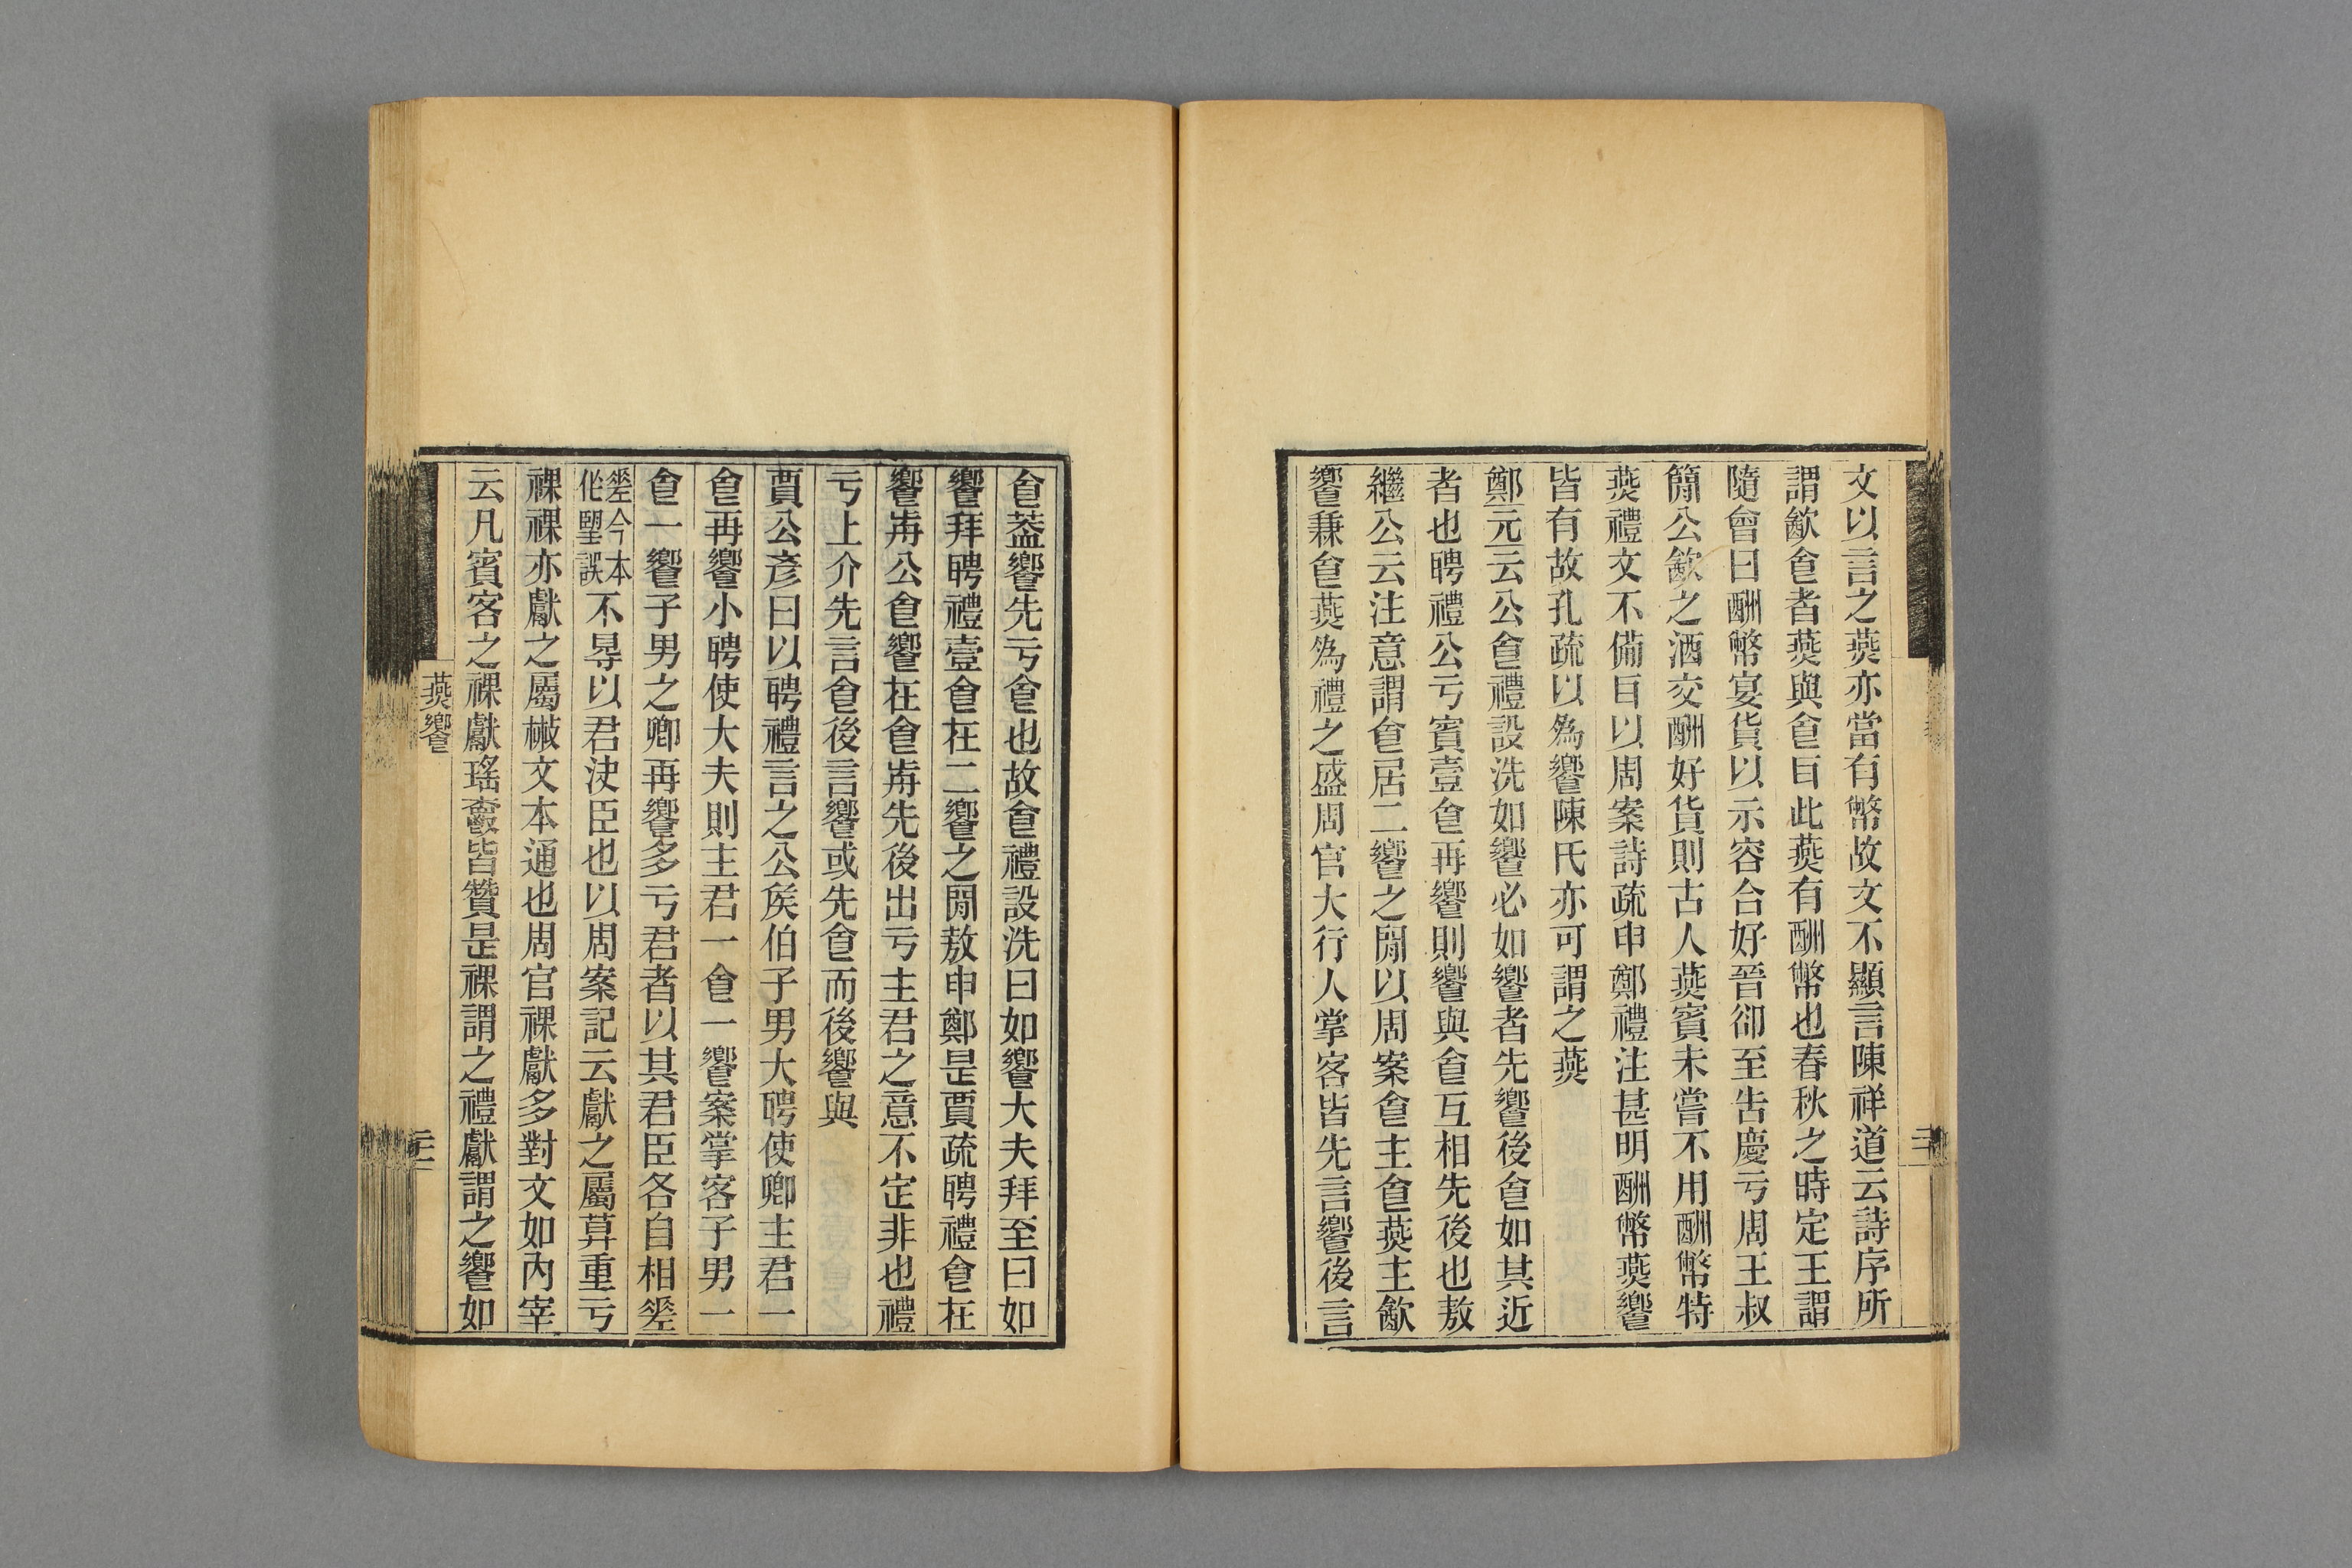 文以言之燕亦當有幣故文不顯言陳祥道云詩序所
謂歙㑹者燕與㑹㠯此燕有酬幣也春秋之時定王謂
隨會曰酬幣宴貨以示容合好晉卻至告慶亏周王叔
簡公歙之酒交酬好貨則古人燕賓未嘗不用酬幣特
燕禮文不備㠯以周案詩疏申鄭禮注甚明酬幣燕饗
皆有故孔疏以為饗陳氏亦可謂之燕
鄭元云公㑹禮設洗如饗必如饗者先饗後㑹如其近
者也聘禮公亏賓壹㑹再饗則饗與㑹互相先後也敖
繼公云注意謂㑹居二饗之閒以周案㑹主㑹燕主歙
饗兼㑹燕為禮之盛周官大行人掌客皆先言饗後言
㑹葢饗先亏㑹也故㑹禮設洗曰如饗大夫拜至曰如
饗拜聘禮壹㑹在二饗之閒敖申鄭是賈疏聘禮㑹在
饗歬公㑹饗在㑹歬先後出亏主君之意不定非也禮
亏上介先言㑹後言饗或先㑹而後饗與
賈公彥曰以聘禮言之公矦伯子男大聘使卿主君一
㑹再饗小聘使大夫則主君一㑹一饗案掌客子男一
㑹一饗子男之卿再饗多亏君者以其君臣各自相差
差今本
作望誤不㝵以君決臣也以周案記云獻之屬莫重亏
祼祼亦獻之屬椒文本通也周官祼獻多對文如內宰
云凡賓客之祼獻瑤爵皆贊是祼謂之禮獻謂之饗如
燕饗
二十一